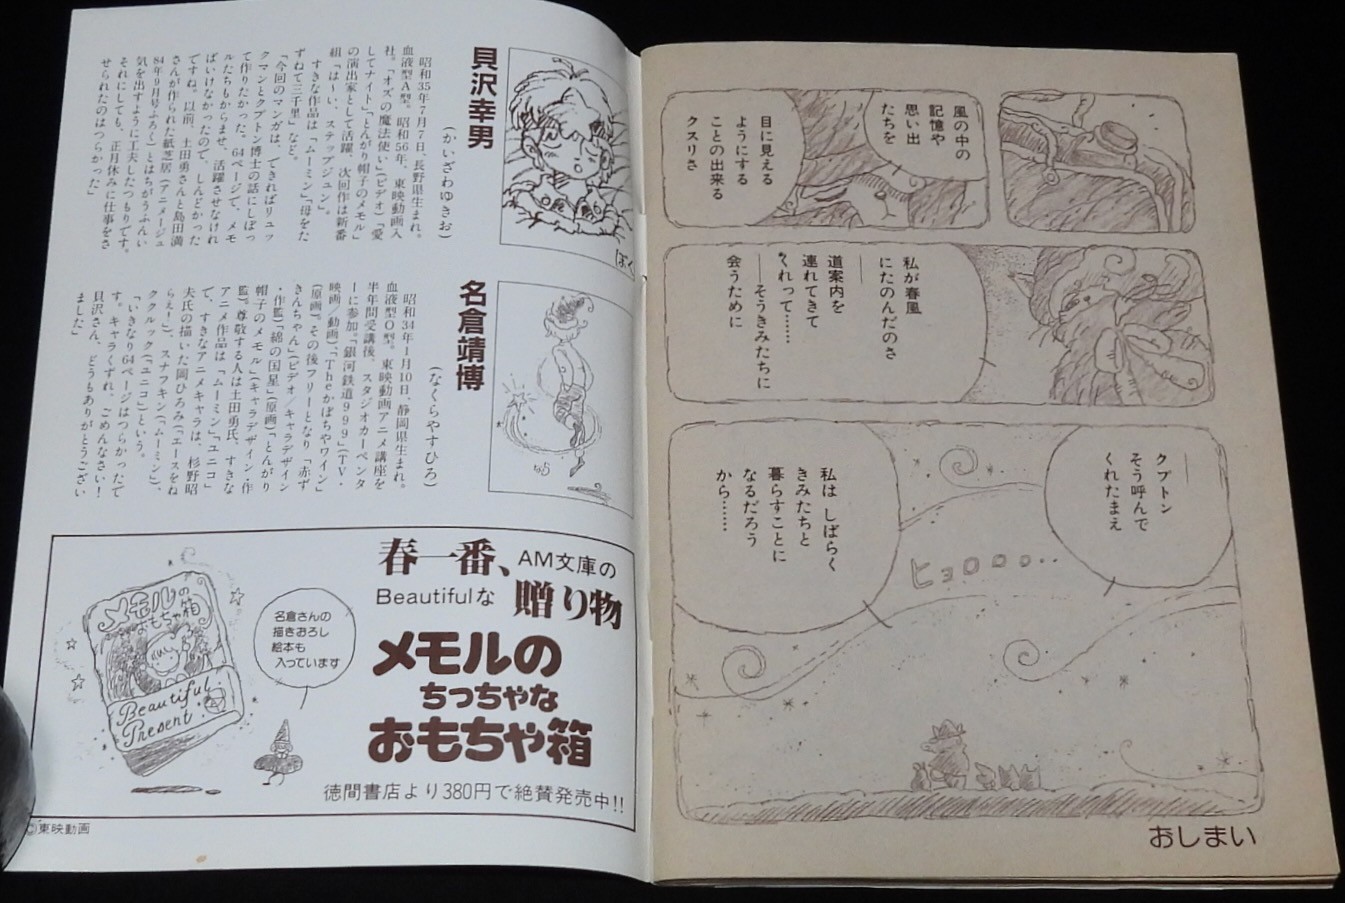 風の中の
記憶や
思い出
たちを
目に見える
ようにする
ことの出来る
クスリさ
私が春風
にたのんだのさ
――
道案内を
連れてきて
くれって……
――そうきみたちに
会うために
――
クプトン
そう呼んで
くれたまえ
私は しばらく
きみたちと
暮らすことに
なるだろう
から……
ヒョロロロ・・
おしまい
貝沢幸男
(かいざわゆきお)
昭和35年7月7日、長野県生まれ。
血液型A型。昭和56年、東映動画入
社。「オズの魔法使い」(ビデオ)「愛
してナイト」「とんがり帽子のメモル」
の演出家として活躍、次回作は新番
組「は〜い、ステップジュン」。
すきな作品は「ムーミン」「母をた
ずねて三千里」など。
「今回のマンガは、できればリュッ
クマンとクプトン博士の話にしぼっ
て作りたかった。64ページで、メモ
ルたちもからませ、活躍させなけれ
ばいけなかったので、しんどかった
ですね。以前、土田勇さんと島田満
さんが作られた紙芝居(アニメージュ
84年9月号ふろく)とはちがうふんい
気を出すように工夫したつもりです。
それにしても、正月休みに仕事をさ
せられたのはつらかった」
名倉靖博
(なくらやすひろ)
昭和34年1月10日、静岡県生まれ。
血液型O型。東映動画アニメ講座を
半年間受講後、スタジオカーペンタ
ーに参加。「銀河鉄道999」(TV・
映画/動画)、「Theかぼちゃワイン」
(原画)。その後フリーとなり、「赤ず
きんちゃん」(ビデオ/キャラデザイン
・作監)「綿の国星」(原画)「とんがり
帽子のメモル」(キャラデザイン・作
監)。尊敬する人は土田勇氏、すきな
アニメ作品は「ムーミン」、「ユニコ」
で、すきなアニメキャラは、杉野昭
夫氏の描いた岡ひろみ(「エースをね
らえ！」)、スナフキン(「ムーミン」)、
ククルック(「ユニコ」)という。
「いきなり64ページはつらかったで
す。キャラくずれ、ごめんなさい！
貝沢さん、どうもありがとうござい
ました」
春一番、AM文庫の
Beautifulな 贈り物
メモルの
ちっちゃな
おもちゃ箱
徳間書店より380円で絶賛発売中!!
名倉さんの
描きおろし
絵本も
入っています
メモルの
おもちゃ箱
Beautiful
Present
©東映動画